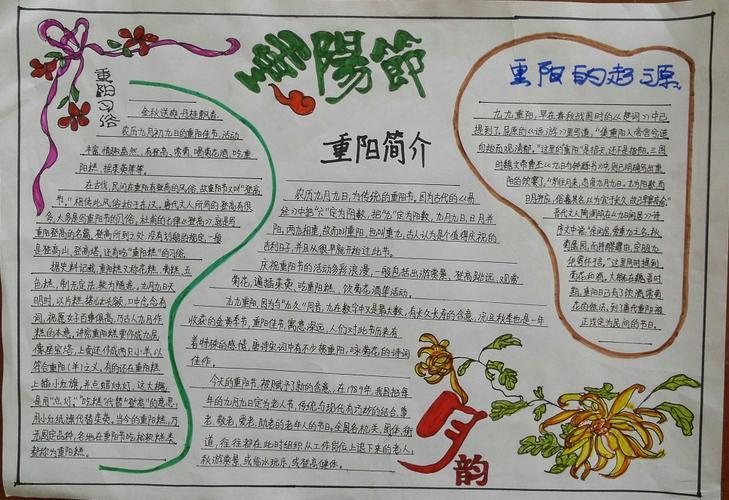 重陽節
重阳习俗
金秋送爽,丹桂飘香,
农历九月初九日的重阳佳节,活动
丰富,情趣盎然,有登高、赏菊、喝菊花酒、吃重
阳糕、插茱萸等等。
在古代,民间在重阳有登高的风俗,故重阳节又叫“登高
节”。相传此风俗始于东汉。唐代文人所写的登高诗很
多,大多是写重阳节的习俗,杜甫的七律《登高》,就是写
重阳登高的名篇,登高所到之处,没有划一的规定,一般
是登高山、登高塔,还有吃“重阳糕”的习俗
据史料记载,重阳糕又称花糕、菊糕、五
色糕,制无定法,较为随意,九月九日天
明时,以片糕搭儿女头额,口中念念有
词,祝愿子女百事俱高,乃古人九月作
糕的本意。讲究的重阳糕要作成九层,
像座宝塔,上面还作成两只小羊,以
符合重阳(羊)之义。有的还在重阳糕
上插小红旗,并点蜡烛灯,这大概
是用“点灯”、“吃糕”代替“登高”的意思,
用小红纸旗代替茱萸。当今的重阳糕,仍
无固定品种,各地在重阳节吃松软糕类
都称为重阳糕。
重阳简介
农历九月九日,为传统的重阳节。因为古代的《易
经》中把“六”定为阴数,把“九”定为阳数,九月九日,日月并
阳,两九相重,故而叫重阳,也叫重九,古人认为是个值得庆祝的
吉利日子,并且从很早就开始过此节。
庆祝重阳节的活动多彩浪漫,一般包括出游赏景、登高眺远、观赏
菊花、遍插茱萸、吃重阳糕、饮菊花酒等活动。
九九重阳,因为与“久久”同音,九在数字中又是最大数,有长久长寿的含意,况且秋季也是一年
收获的金黄季节,重阳佳节,寓意深远,人们对此节历来有
着特殊的感情,唐诗宋词中有不少贺重阳,咏菊花的诗词
佳作。
今天的重阳节,被赋予了新的含意,在1989年,我国把每
年的九月九日定为老人节,传统与现代巧妙的结合,尊
老、敬老、爱老、助老的老年人的节日。全国各机关、团体、街
道,往往都在此时组织从工作岗位上退下来的老人,
秋游赏景、或临水玩乐、或登高健体。
重阳的起源
九九重阳,早在春秋战国时的《楚词》中已
提到了。屈原的《远游》里写道:“集重阳入帝宫兮造
旬始而观清都。”这里的“重阳”是指天,还不是指节。三国
时魏文帝曹丕《九日与钟繇书》中,则已明确写出重
阳的饮宴了:“岁往月来,忽复九月九日。九为阳数,而
日月并应,俗嘉其名,以为宜于长久,故以享宴高会”
晋代文人陶渊明在《九日闲居》诗
序文中说:“余闲居,爱重九之名。秋
菊盈园,而持醪靡由,空服九
华,寄怀于言。”这里同时提到
菊花和酒。大概在魏晋时
期,重阳日已有了饮酒、赏菊
花的做法。到了唐代重阳被
正式定为民间的节日。
月
韵